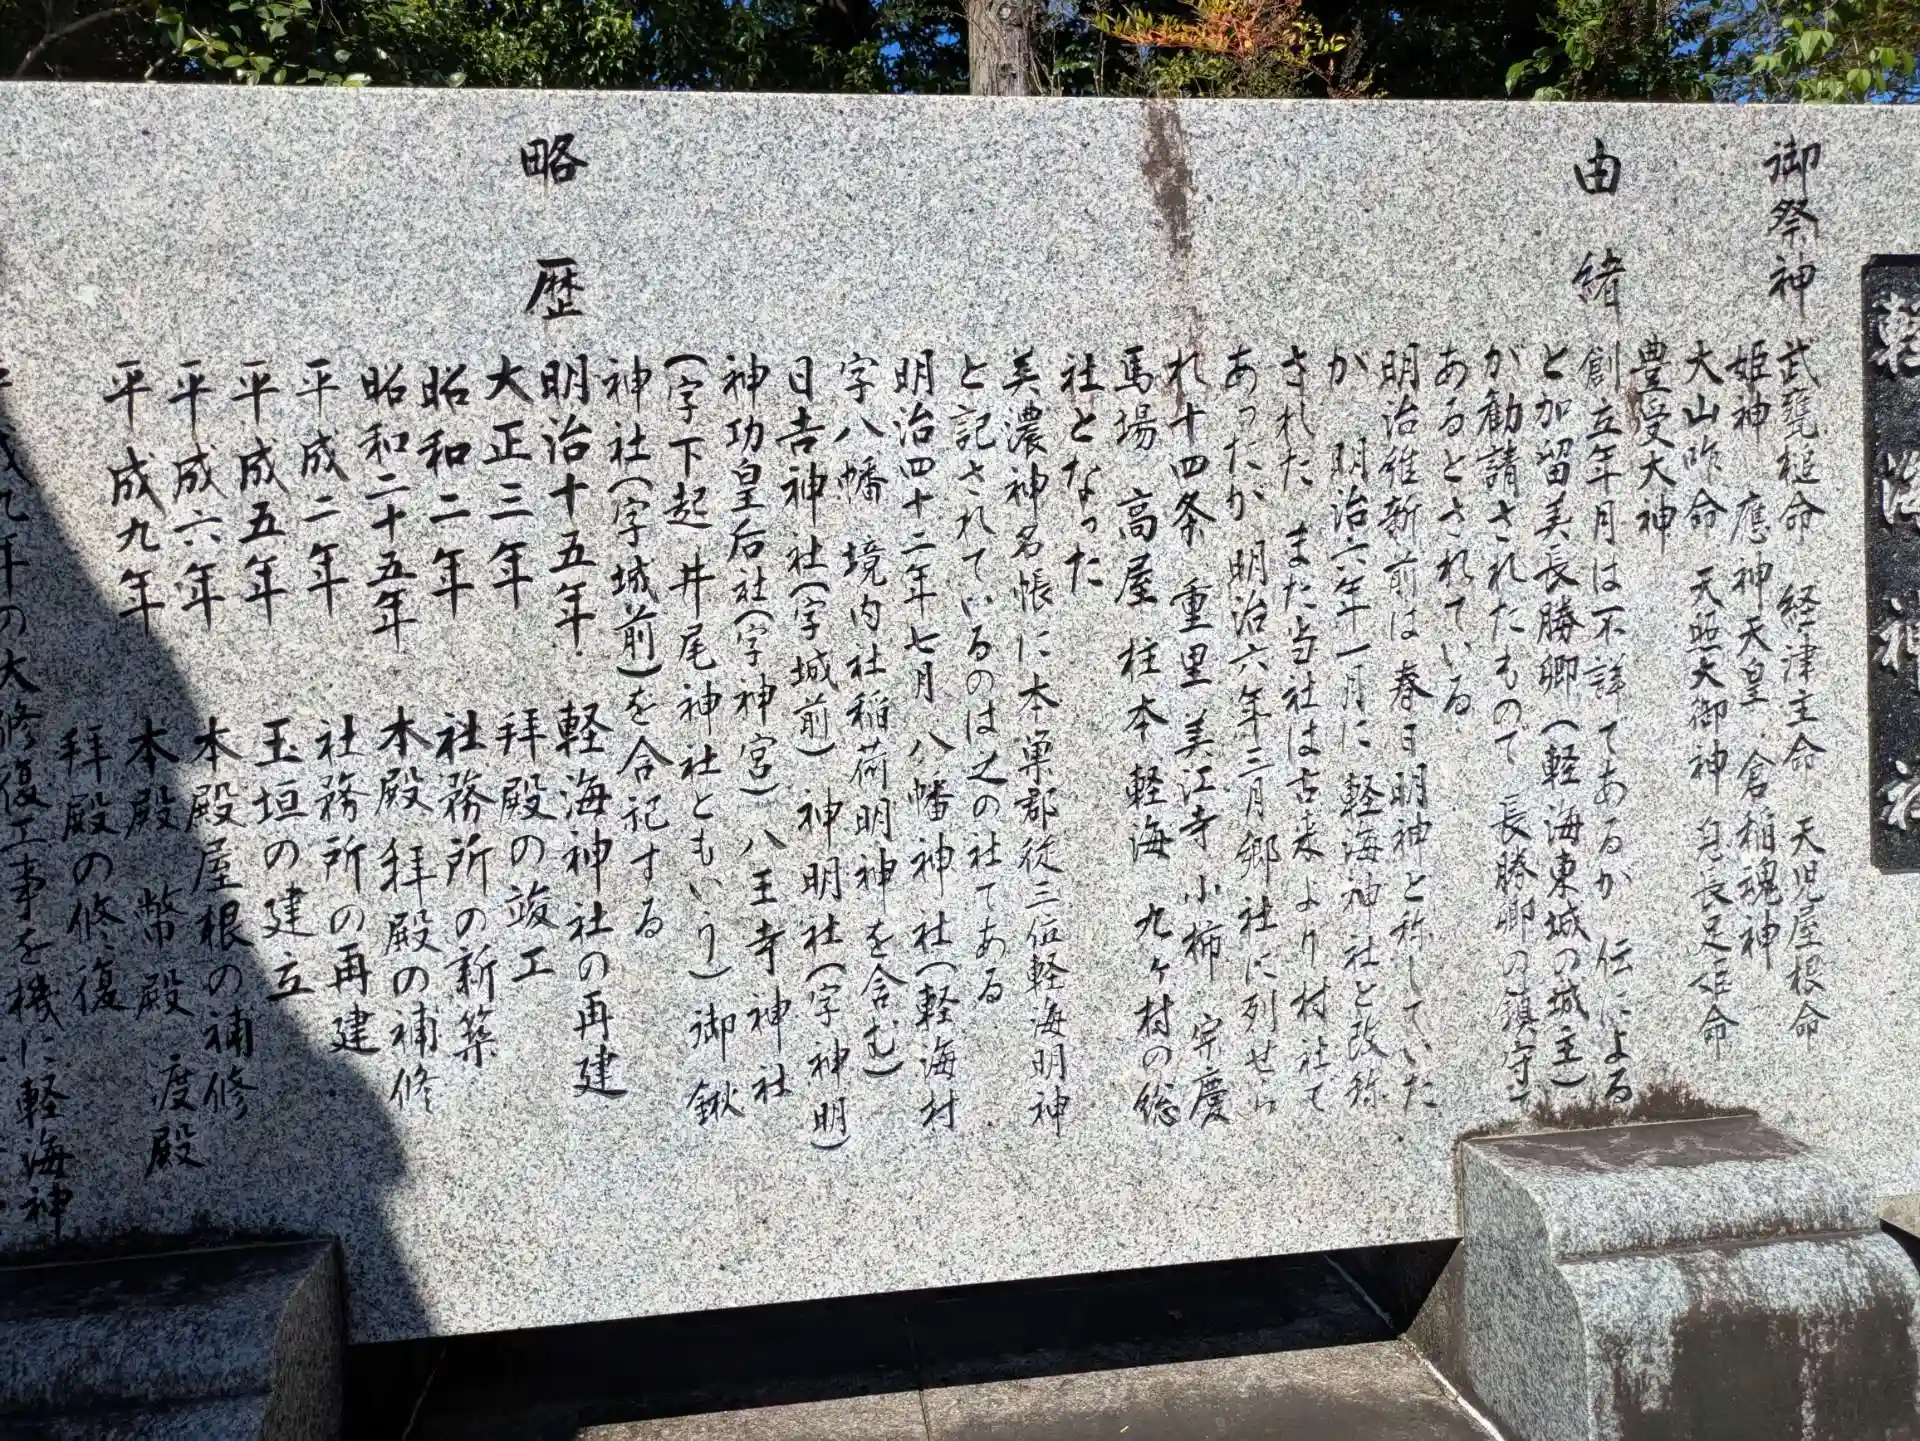 軽海神社
御祭神
武甕槌命 経津主命 天児屋根命
姫神 應神天皇 倉稲魂神
大山咋命 天照大御神 息長足姫命
豊受大神
由緒
創立年月は不詳であるが 伝による
と加留美長勝卿(軽海東城の城主)
が勧請されたもので 長勝卿の鎮守で
あるとされている
明治維新前は春日明神と称していた
が 明治六年一月に軽海神社と改称
された また当社は古来より村社で
あったが 明治六年三月郷社に列せら
れ十四条 重里 美江寺 小柿 宗慶
馬場 高屋 柱本 軽海 九ヶ村の総
社となった
美濃神名帳に本巣郡従三位軽海明神
と記されているのは之の社である
明治四十二年七月 八幡神社(軽海村
字八幡 境内社稲荷明神を含む)
日吉神社(字城前) 神明社(字神明)
神功皇后社(字神宮) 八王寺神社
(字下起 井尾神社ともいう) 御鍬
神社(字城前)を合記する
略歴
明治十五年 軽海神社の再建
大正三年 拝殿の竣工
昭和二年 社務所の新築
昭和二十五年 本殿 拝殿の補修
平成二年 社務所の再建
平成五年 玉垣の建立
平成六年 本殿屋根の補修
平成九年 本殿 幣殿 渡殿
拝殿の修復
平成九年の大修復工事を機に軽海神